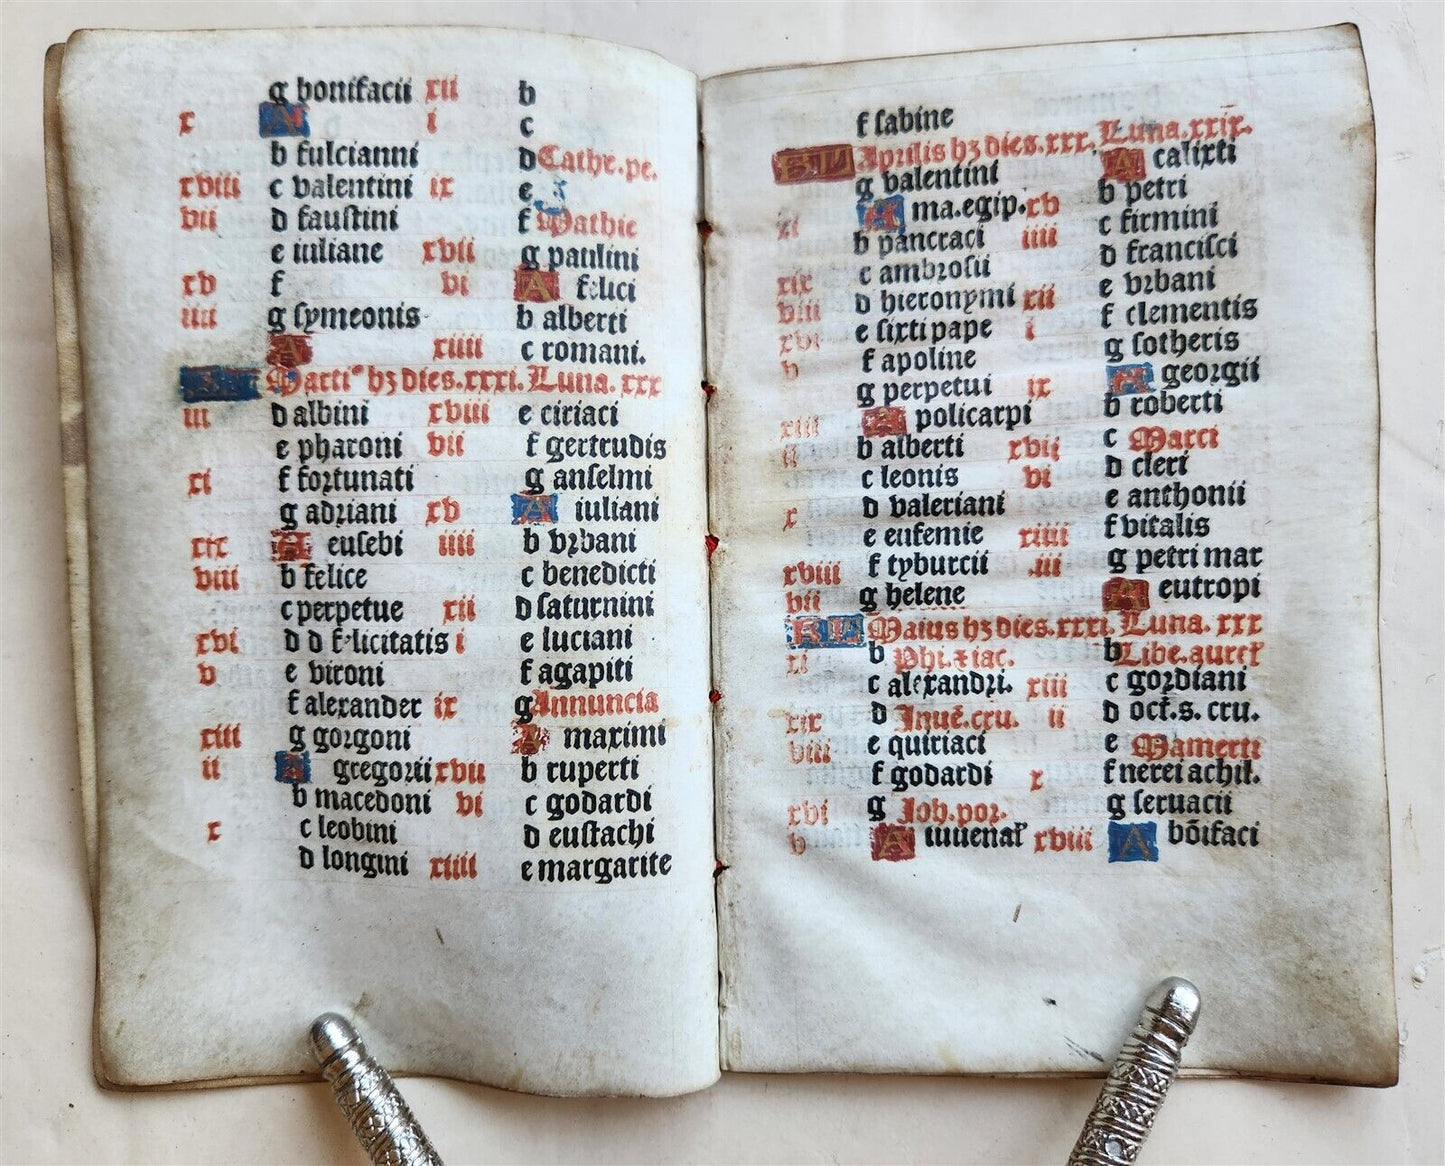 g bonifacii xii b
x A i c
b fulcianni d Cathe.pe.
xviii c valentini ix e
vii d faustini f Mathie
e iuliane xvii g paulini
xv f vi A felici
iiii g symeonis b alberti
A xiiii c romani.
KL Marti⁹ hȝ dies.xxxi. Luna. xxx
iii d albini xviii e ciriaci
e pharoni vii f gertrudis
xi f fortunati g anselmi
g adriani xv A iuliani
xix A eusebi iiii b vrbani
viii b felice c benedicti
c perpetue xii d saturnini
xvi d d felicitatis i e luciani
v e vironi f agapiti
f alexander ix g Annuncia
xiii g gorgoni A maximi
ii A gregorii xvii b ruperti
b macedoni vi c godardi
x c leobini d eustachi
d longini xiiii e margarite
f sabine
KL Aprilis hȝ dies.xxx. Luna.xxix.
g valentini A calixti
xi A ma.egip. xv b petri
b pancraci iiii c firmini
xix c ambrosii d francisci
viii d hieronymi xii e vrbani
xvi e sixti pape i f clementis
v f apoline g sotheris
g perpetui ix A georgii
xiii A policarpi b roberti
ii b alberti xvii c Marci
c leonis vi d cleri
x d valeriani e anthonii
e eufemie xiiii f vitalis
xviii f tyburcii .iii g petri mar
vii g helene A eutropi
KL Maius hȝ dies.xxxi. Luna. xxx
xi b Phi. ⁊ iac. b Libe.aureť
c alexandri. xiii c gordiani
xix d Inuē.cru. ii d oct̄.s. cru.
viii e quiriaci e Mamerti
f godardi x f nerei achil.
xvi g Joh.por. g seruacii
v A iuuenať xviii A bōifaci